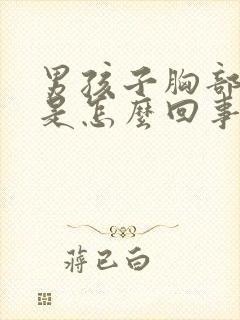 男孩子胸部
是怎麼回事
蔣已白